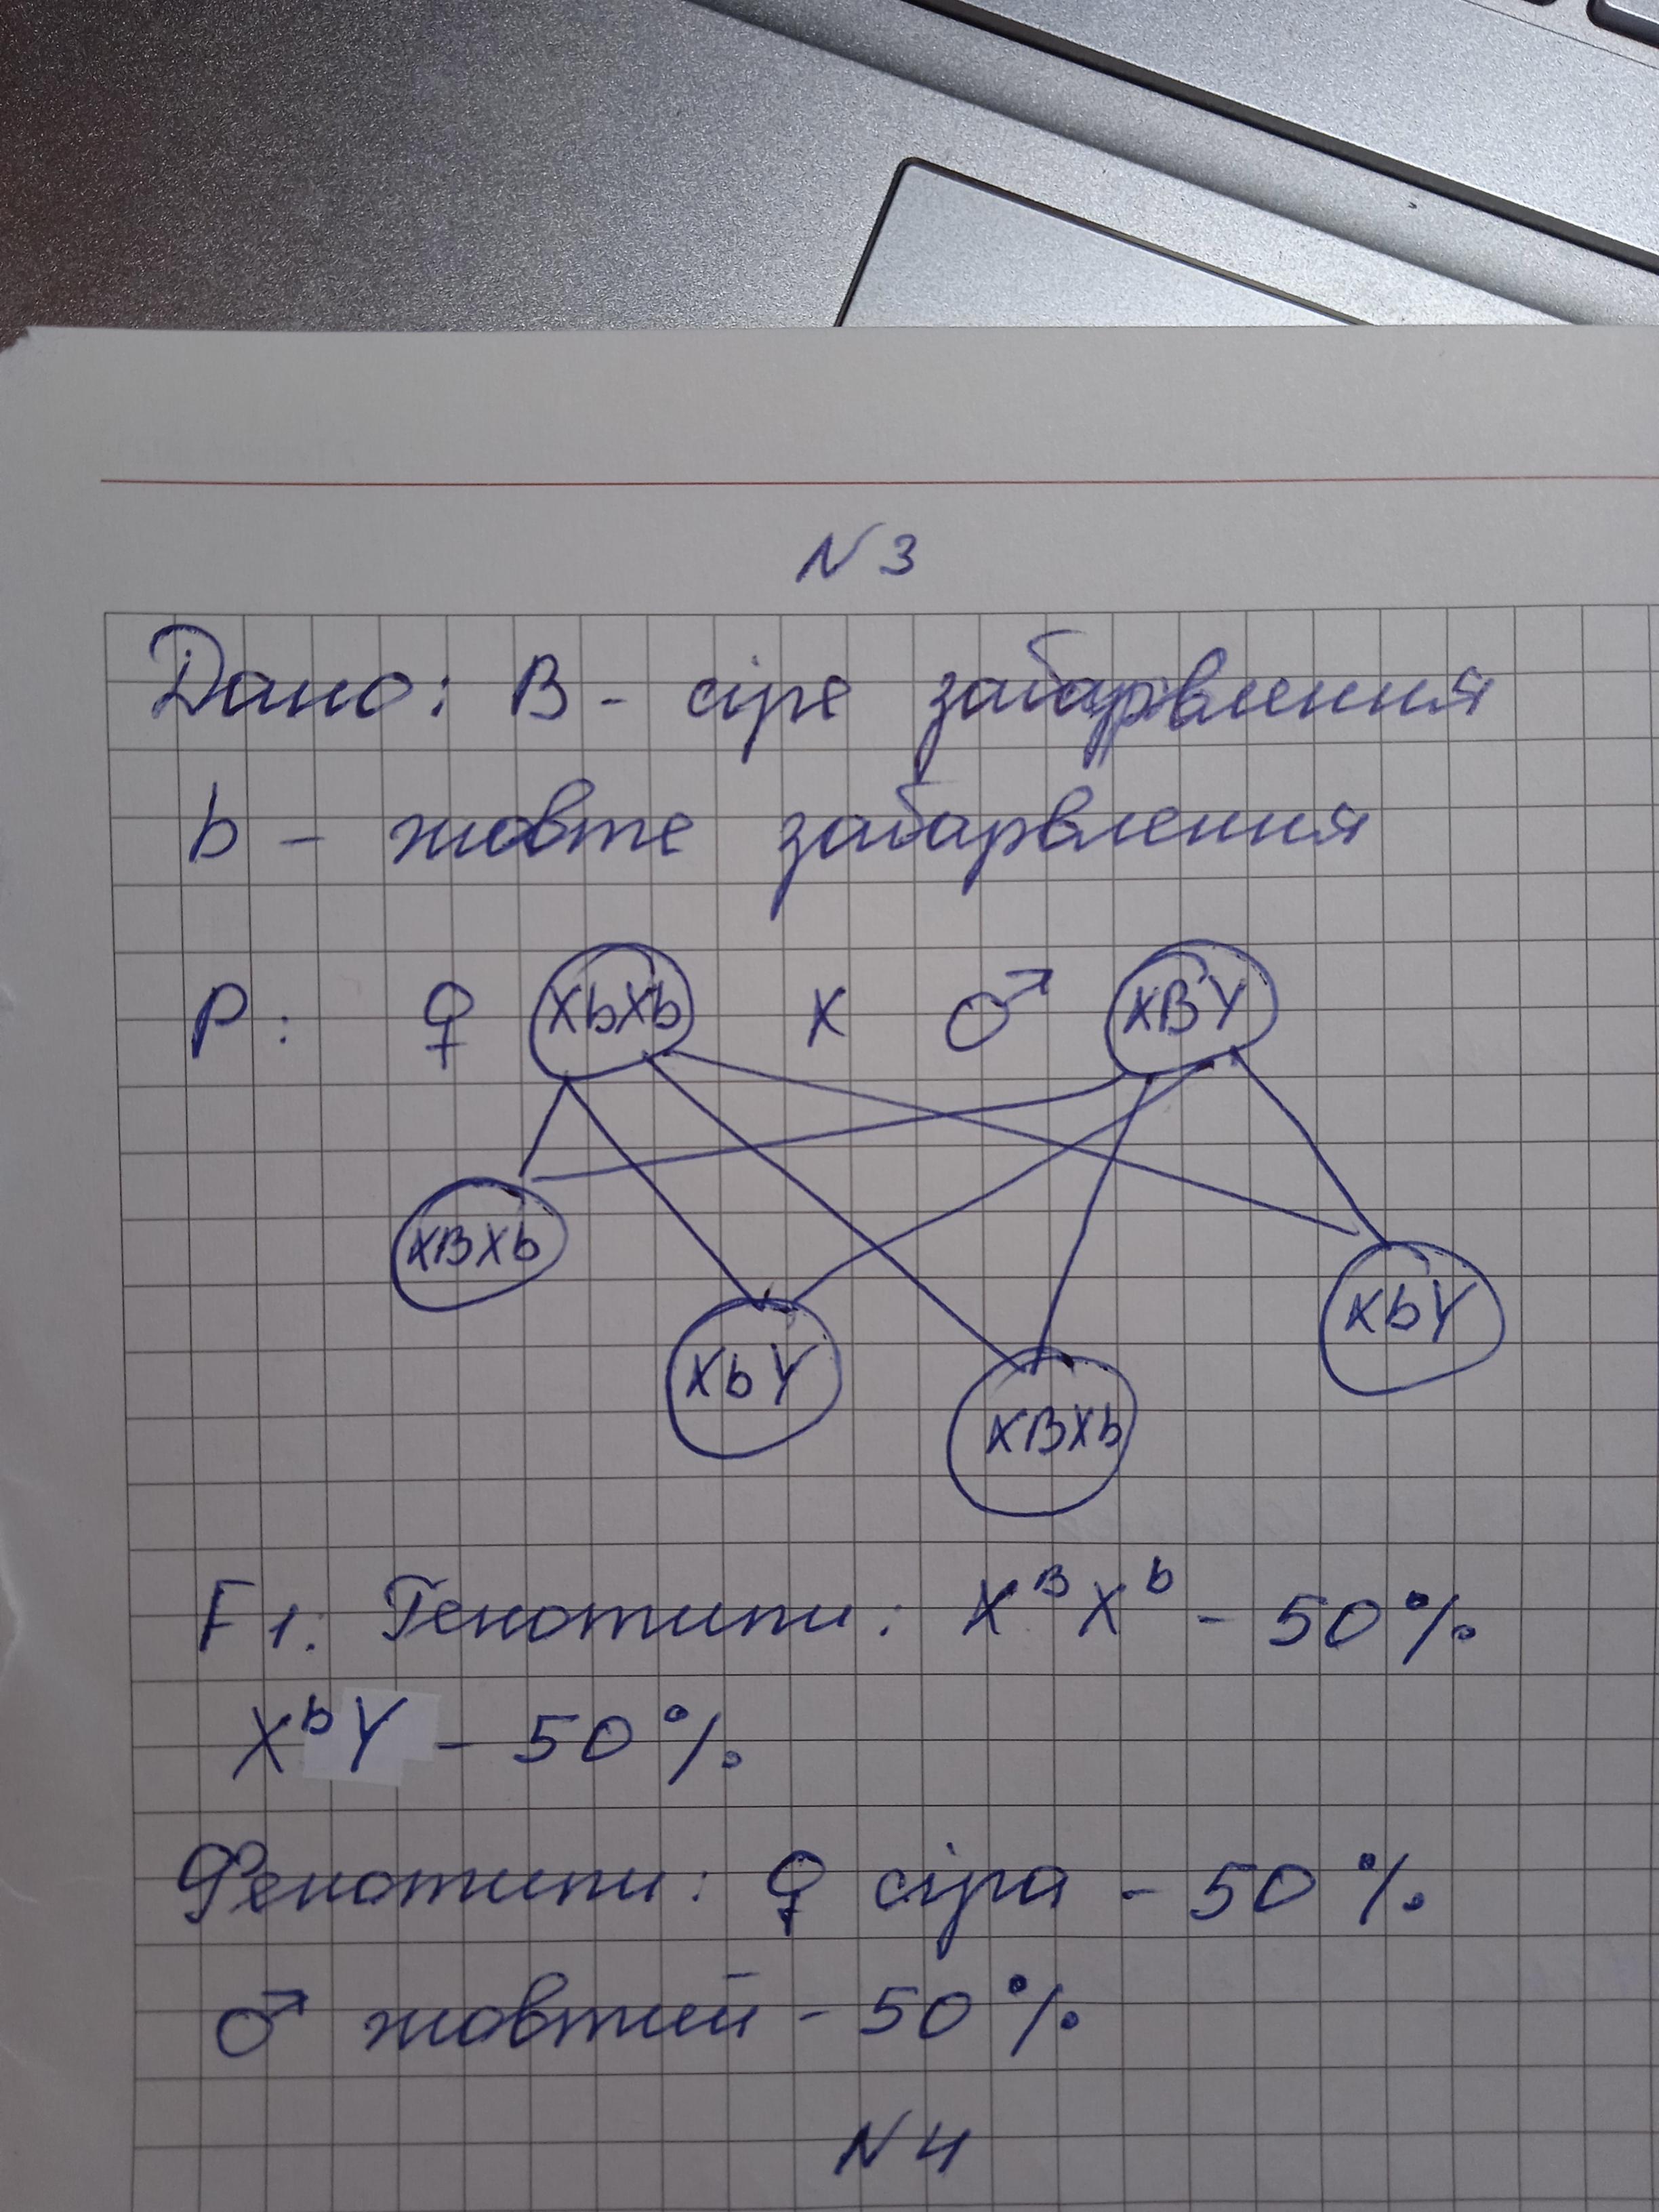 N 3
Дано: B - сіре забарвлення
b - жовте забарвлення
P: ♀ XbXb x ♂ XBY
XBXb
XbY
XbY
XBXb
F1: Генотипи: XᴮXᵇ - 50%
XᵇY - 50%
Фенотипи: ♀ сіра - 50%
♂ жовтий - 50%
N 4